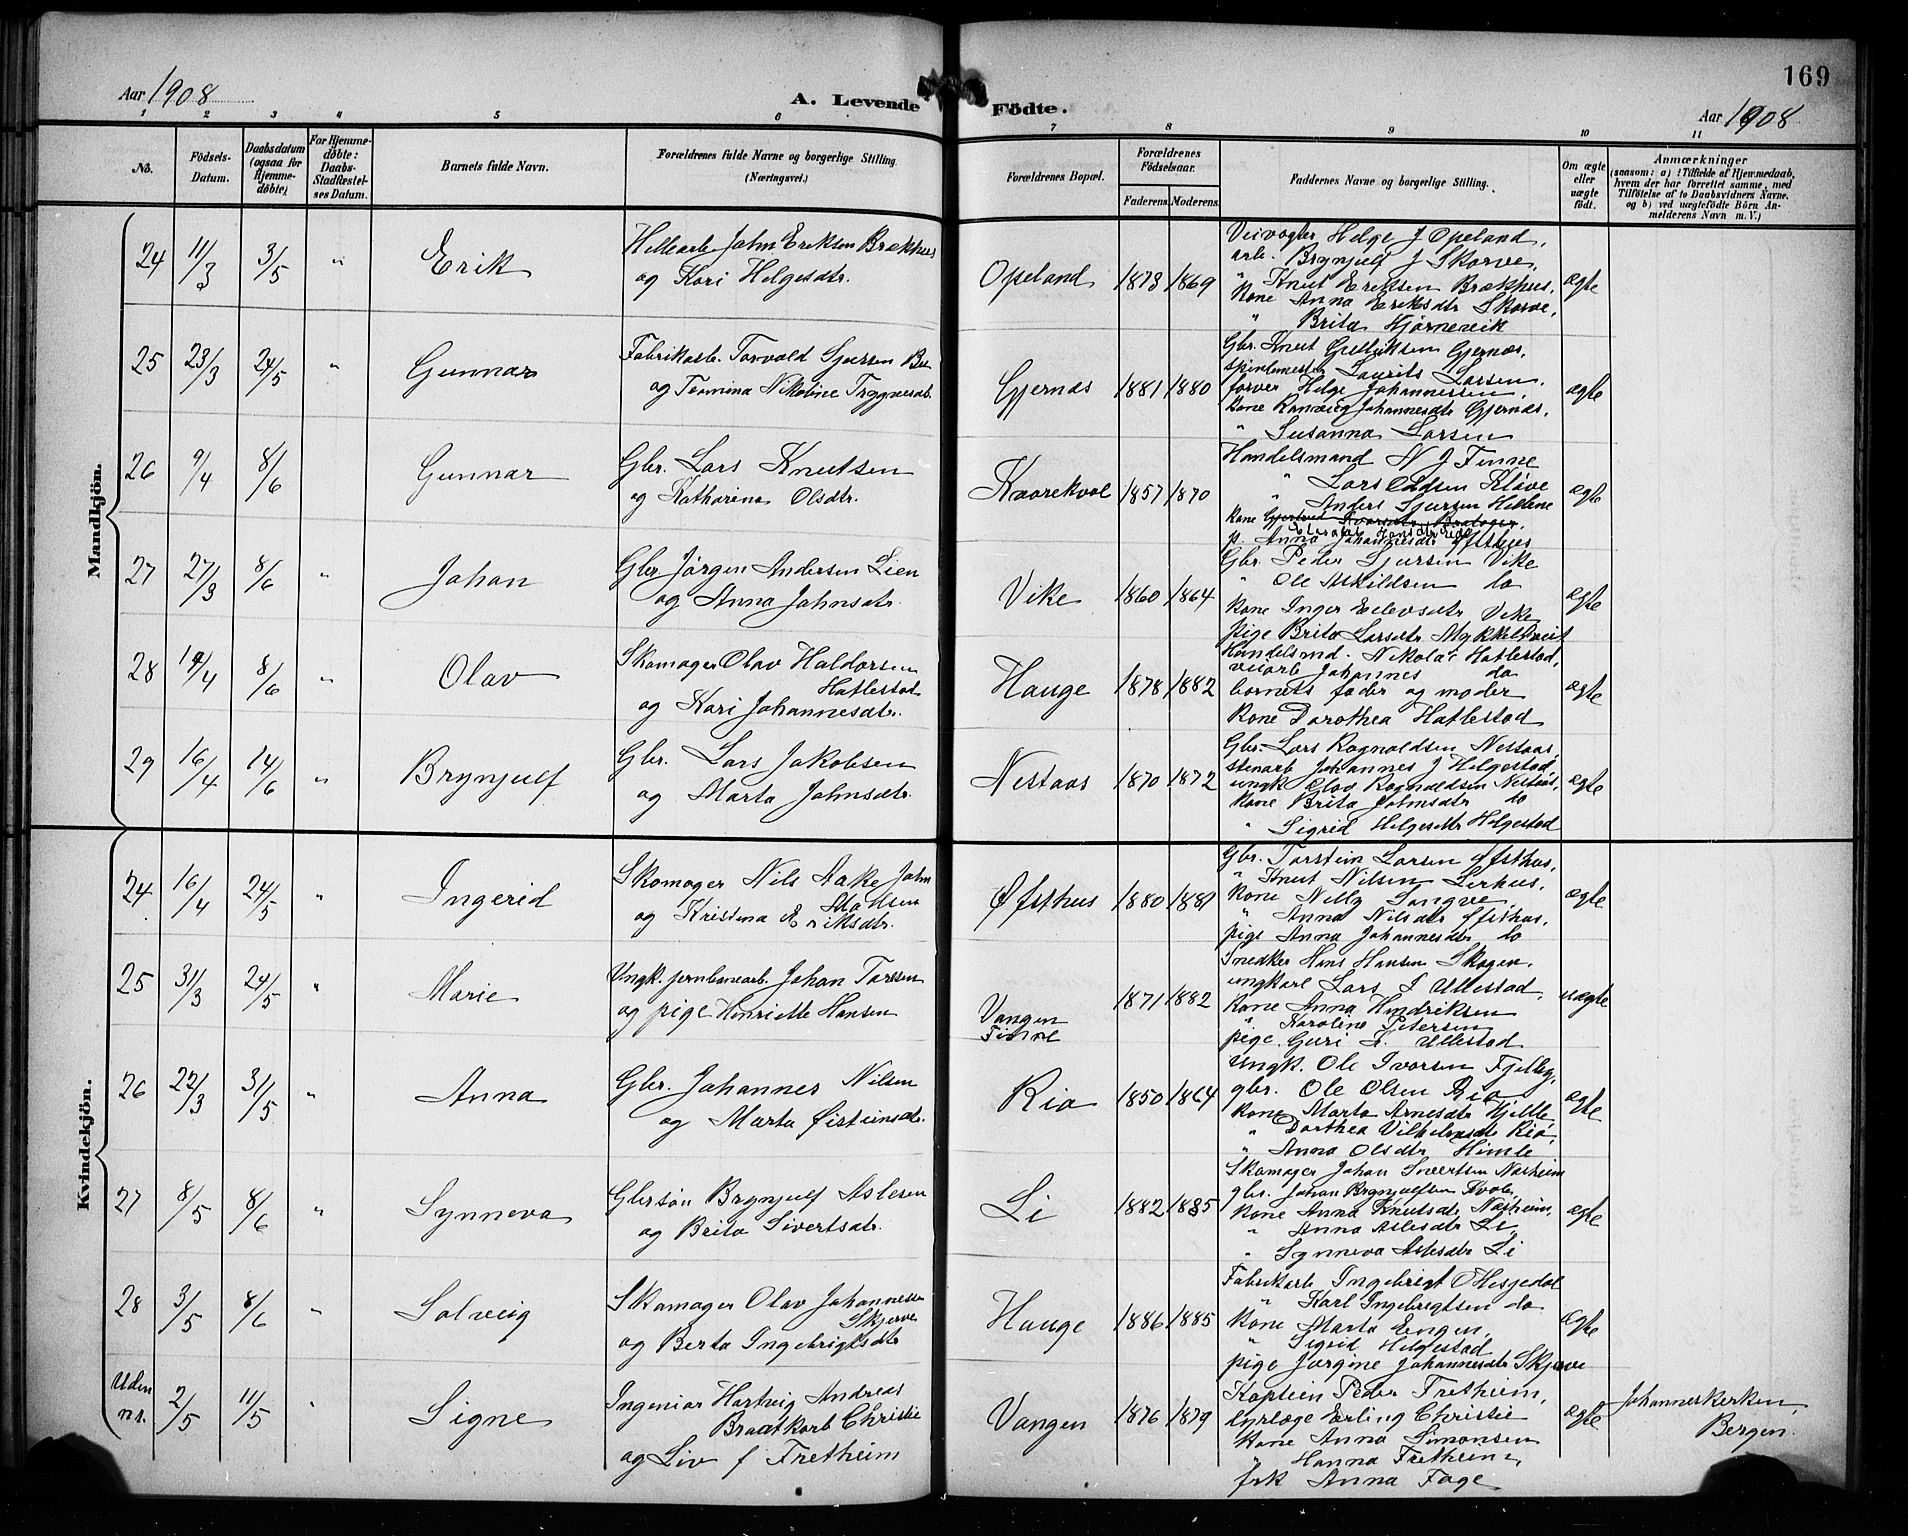 169
Aar 1908
A. Levende Födte.
Aar 1908
1 2 3 4 5 6 7 8 9 10 11
No.
Födsels-Datum.
Daabsdatum (ogsaa for Hjemmedöbte)
For Hjemmedöbte: Daabs-Stadfæstelses Datum.
Barnets fulde Navn.
Forældrenes fulde Navne og borgerlige Stilling. (Næringsvei.)
Forældrenes Bopæl.
Forældrenes Födselsaar.
Faderens. Moderens.
Faddernes Navne og borgerlige Stilling.
Om ægte eller uægte födt.
Anmærkninger
(saasom: a) i Tilfælde af Hjemmedaab, hvem der har forrettet samme, med Tilföielse af to Daabsvidners Navne. og b) ved uægtefödte Börn Anmelderens Navn m. V.)
Mandkjön.
24 11/3 3/5 " Erik
Hellearb. John Erikson Brækhus
og Kari Helgesdtr.
Opeland 1873 1869
Veivogter Helge J Opeland,
arb. Brynjulf J Skorve,
" Knut Eriksen Brækhus,
Kone Anna Eriksdtr Skorve,
" Brita Hjørnevik
ægte
25 23/3 24/5 " Gunnar
Fabrikarb. Torvald Sjursen Bø
og Tomina Nikoline Trygvesdt.
Gjernæs 1881 1880
Gbr. Knut Gulliksen Gjernæs,
spindemester Laurits Larsen,
farver Helge Johannessen,
Kone Ranveig Johannesdtr Gjernæs,
" Susanna Larsen
ægte
26 9/4 8/6 Gunnar
Gbr. Lars Knutsen
og Katharina Olsdtr.
Kaarekval 1857 1870
Handelsmand N J Finne
" Lars Oddsen Kløve
" Anders Sjursen Hellene
Kone
Elisabet Hansdtr Eide
p. Anna Johannesdtr Øfsthus
ægte
27 27/3 8/6 " Johan
Gbr. Jørgen Andersen Lien
og Anna Johnsdtr.
Vike 1860 1864
Gbr. Peder Sjursen Vike
" Ole Askildsen do
Kone Inger Eilevsdtr Vike
pige Brita Larsdtr Mykkeltveit
ægte
28 19/4 8/6 " Olav
Skomager Olav Haldorsen
Hatlestad
og Kari Johannesdtr.
Hauge 1878 1882
Handelsmd. Nikolai Hatlestad,
veiarb Johannes do
barnets fader og moder
Kone Dorothea Hatlestad
ægte
29 16/4 14/6 " Brynjulf
Gbr. Lars Jakobsen
og Marta Johnsdtr.
Nestaas 1870 1872
Gbr. Lars Ragnaldsen Nestaas,
stenarb Johannes J Helgestad,
ungk Olav Ragnaldsen Nestaas,
Kone Brita Johnsdtr do
" Sigrid Helgesdtr Helgestad
ægte
Kvindekjön.
24. 16/4 24/5 " Ingerid
Skomager Nils Aake John
Madsen
og Kristina Eriksdtr.
Øfsthus 1880 1881
Gbr. Torstein Larsen Øfsthus,
" Knut Nilsen Lirhus,
Kone Nilly Tangve,
" Anna Nilsdtr Øfsthus,
pige Anna Johannesdtr do
ægte
25 31/3 24/5 " Marie
Ungk. jernbanearb. Johan Torsen
og pige Henriette Hansen
Vangen
Finne
1871 1882
Snedker Hans Hansen Skogen,
ungkarl Lars I Ullestad,
Kone Anna Hindriksen
" Karoline Petersen
pige Guri I. Ullestad
uægte
26 22/3 31/5 " Anna
Gbr. Johannes Nilsen
og Marta Øisteinsdtr.
Rio 1850 1864
Ungk. Ole Ivarsen Fjelby,
gbr. Ole Olsen Rio
Kone Marta Arnesdtr Hjelle,
" Dorthea Vilhelmsdtr Rio,
" Anna Olsdtr Himle
ægte
27 8/5 8/6 " Synneva
Gbrsøn Brynjulf Aslesen
og Brita Sivertsdtr.
Li 1882 1885
Skomager Johan Sivertsen Nasheim
gbr. Johan Brynjulfsen Kvale,
Kone Anna Knutsdtr Nasheim,
" Anna Aslesdtr Li,
" Synneva Aslesdtr Li
ægte
28 3/5 8/6 " Solveig
Skomager Olav Johannessen
Skjerve
og Berta Ingebrigtsdtr
Hauge 1886 1885
Fabrikarb Ingebrigt O Hesjedal
" Karl Ingebregtsen do
Kone Marta Engen,
" Sigrid Helgestad
pige Jørgine Johannesdtr Skjerve
ægte
Uden nr. 2/5 11/5 " Signe
Ingeniør Hartvig Andreas
Braatkorb Christie
og Liv f Fretheim
Vangen 1876 1879
Kaptein Peder Fretheim,
dyrlæge Erling Christie
Kone Anna Simonsen
" Hanna Fretheim,
frk Anna Fage
ægte
Johanneskerken,
Bergen.